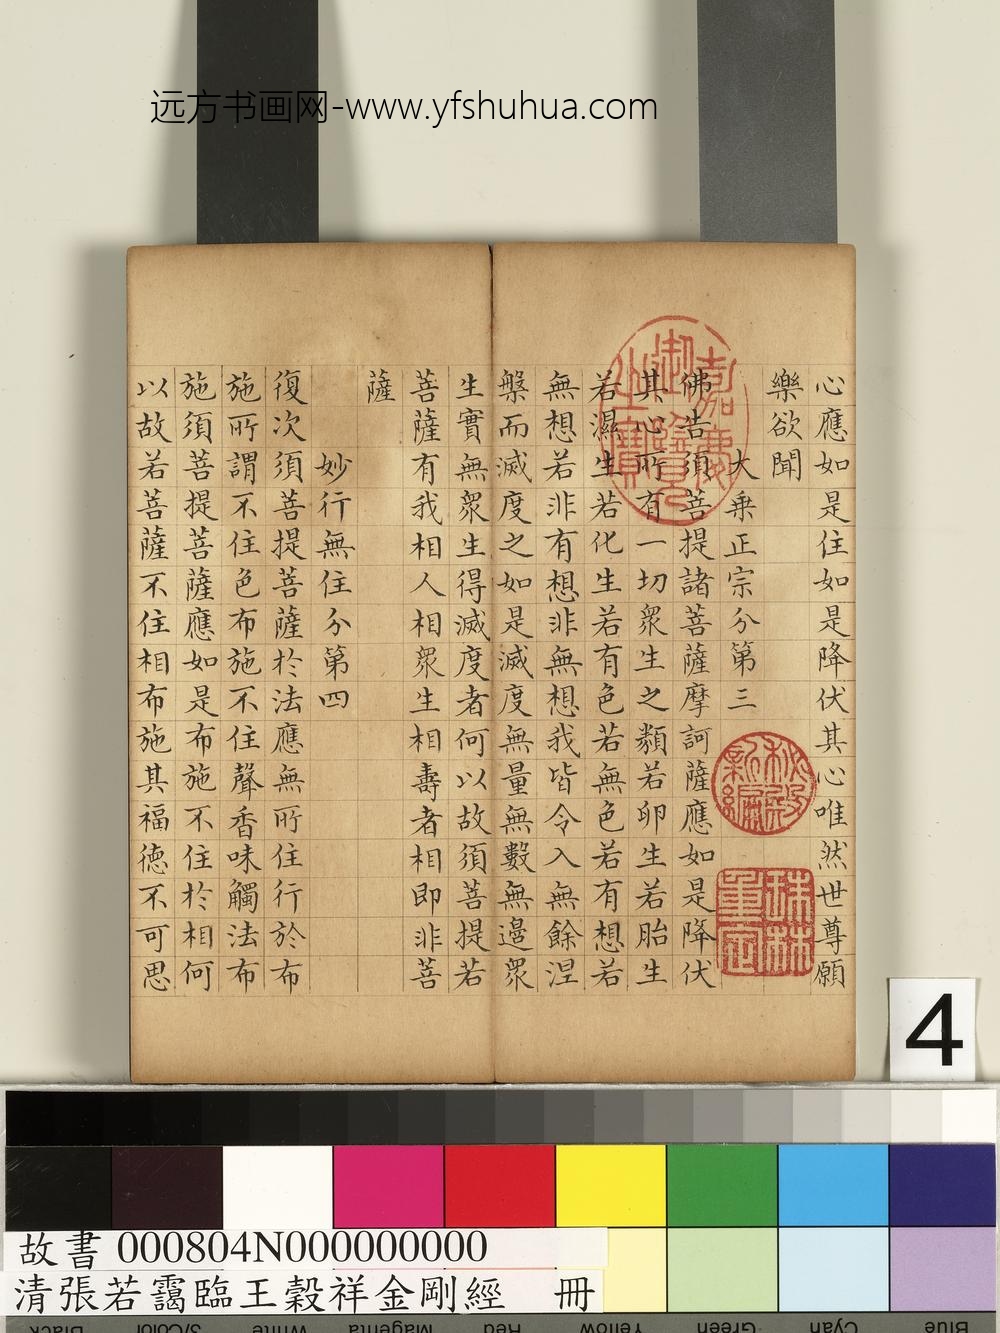 远方书画网-www.yfshuhua.com
心應如是住如是降伏其心唯然世尊願
樂欲聞
大乗正宗分第三
佛告須菩提諸菩薩摩訶薩應如是降伏
其心所有一切眾生之類若卵生若胎生
若濕生若化生若有色若無色若有想若
無想若非有想非無想我皆令入無餘涅
槃而滅度之如是滅度無量無數無邊眾
生實無眾生得滅度者何以故須菩提若
菩薩有我相人相眾生相壽者相即非菩
薩
妙行無住分第四
復次須菩提菩薩於法應無所住行於布
施所謂不住色布施不住聲香味觸法布
施須菩提菩薩應如是布施不住於相何
以故若菩薩不住相布施其福德不可思
嘉慶
御覽
之寶
秘殿
新編
珠林
重定
4
故書 000804N000000000
清張若靄臨王穀祥金剛經 冊
Black 3/Color White Magenta Red Yellow Green Cyan Blue